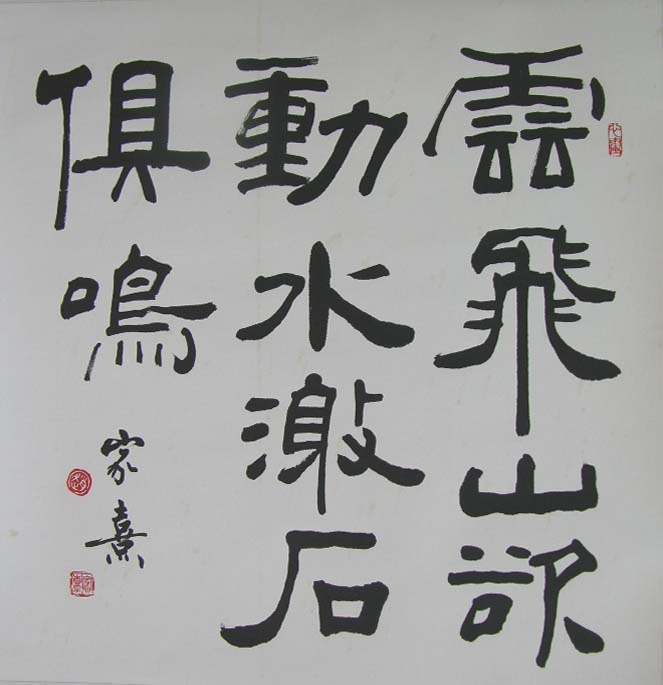 雲飛山欲
動水激石
俱鳴
家熹